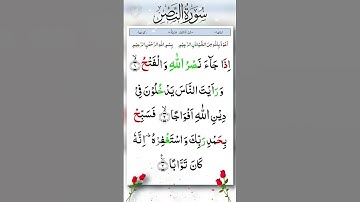 سُورَةُ النَّصْرِ
أَعُوذُ بِاللّٰهِ مِنَ الشَّيْطَانِ الرَّجِيْمِ بِسْمِ اللّٰهِ الرَّحْمٰنِ الرَّحِيْمِ
اِذَا جَآءَ نَصْرُ اللّٰهِ وَالْفَتْحُ ۝١
وَرَاَيْتَ النَّاسَ يَدْخُلُوْنَ فِيْ
دِيْنِ اللّٰهِ اَفْوَاجًا ۝٢ فَسَبِّحْ
بِحَمْدِ رَبِّكَ وَاسْتَغْفِرْهُ ؔ اِنَّهٗ
كَانَ تَوَّابًا ۝٣